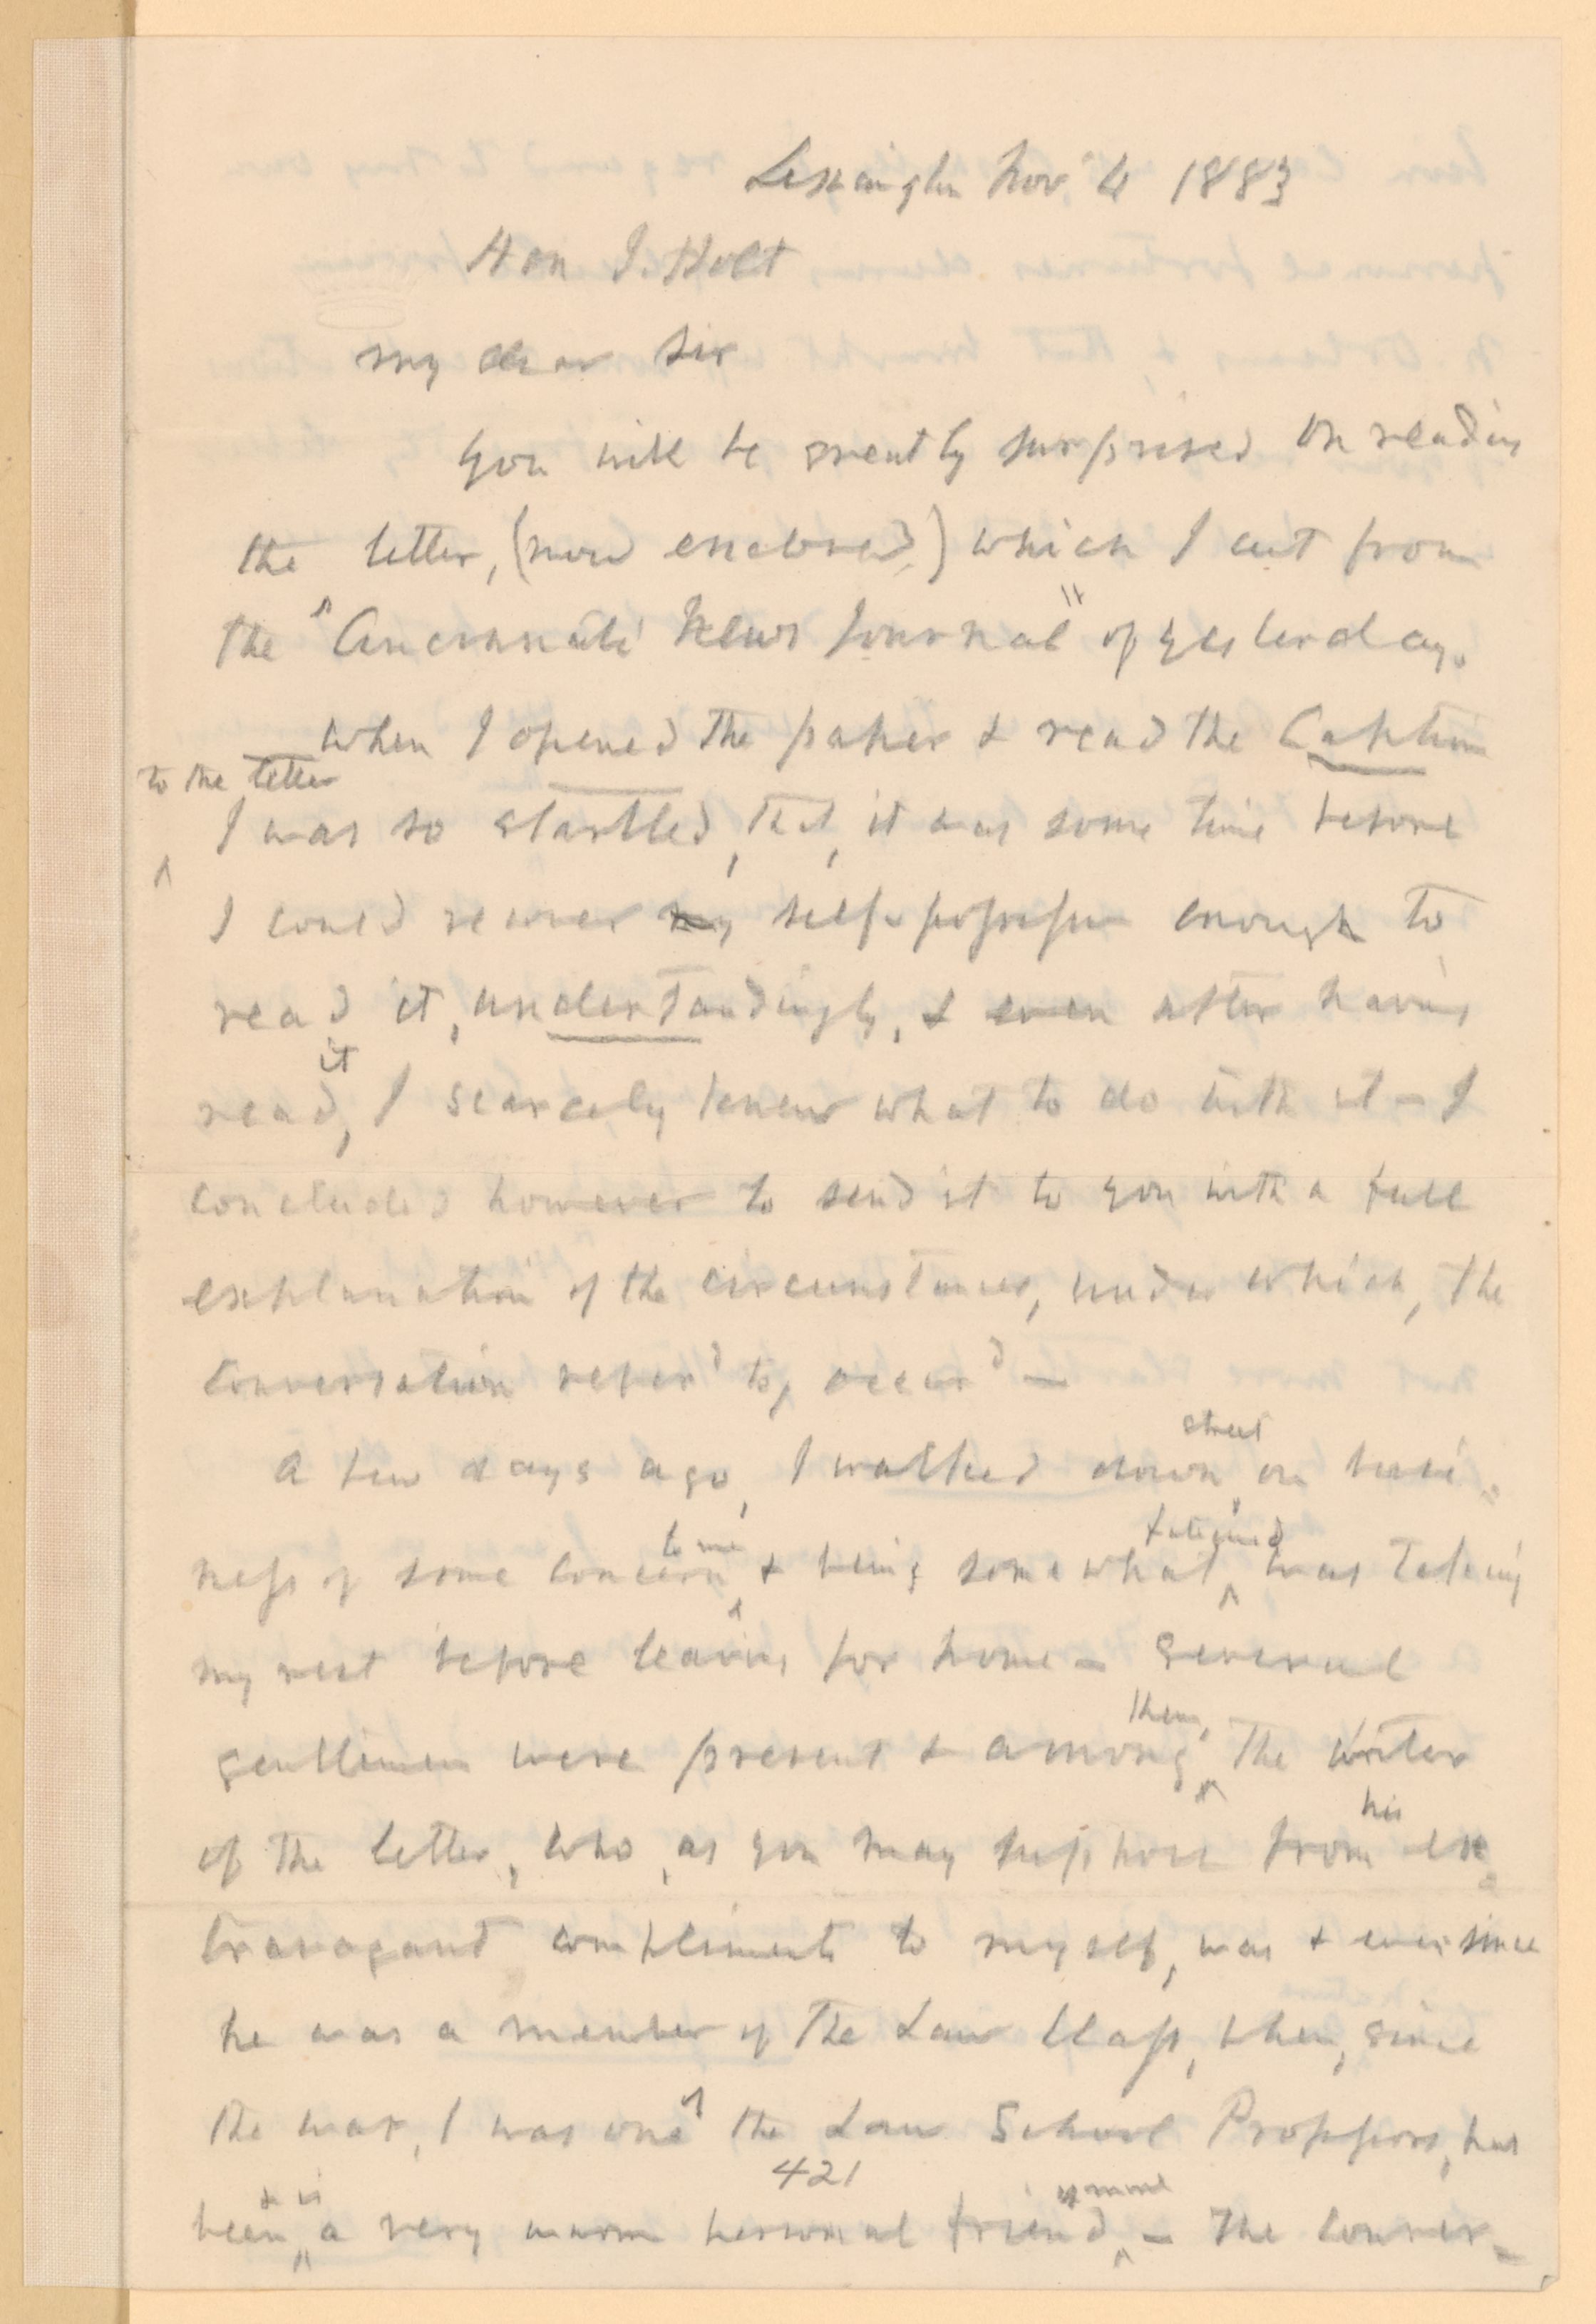 Lexington Nov. 4 1883
Hon J. Holt
My dear Sir
You will be greatly surprised on reading
the letter, (now enclosed,) which I cut from
the "Cincinnati News Journal" of yesterday.
When I opened the paper & read the Caption
to the letter
I was so startled, that, it was some time before
I could recover my self-possession enough to
read it, understandingly, & even after having
it
read, I scarcely knew what to do with it - I
concluded however to send it to you with a full
explanation of the circumstances, under which, the
conversation refer'd to, occur'd -
street
A few days ago, I walked down, on busi-
to me fatigued
ness of some concern & being somewhat was taking
my rest before leaving for home - Several
them,
gentlemen were present & among the writer
his
of the letter, who, as you may suppose from ex-
travagant compliments to myself, was & ever since
he was a member of the Law Class, when, since
of
the war, I was one the Law School Professors, has
421
& is of mine
been a very warm personal friend - The conver-